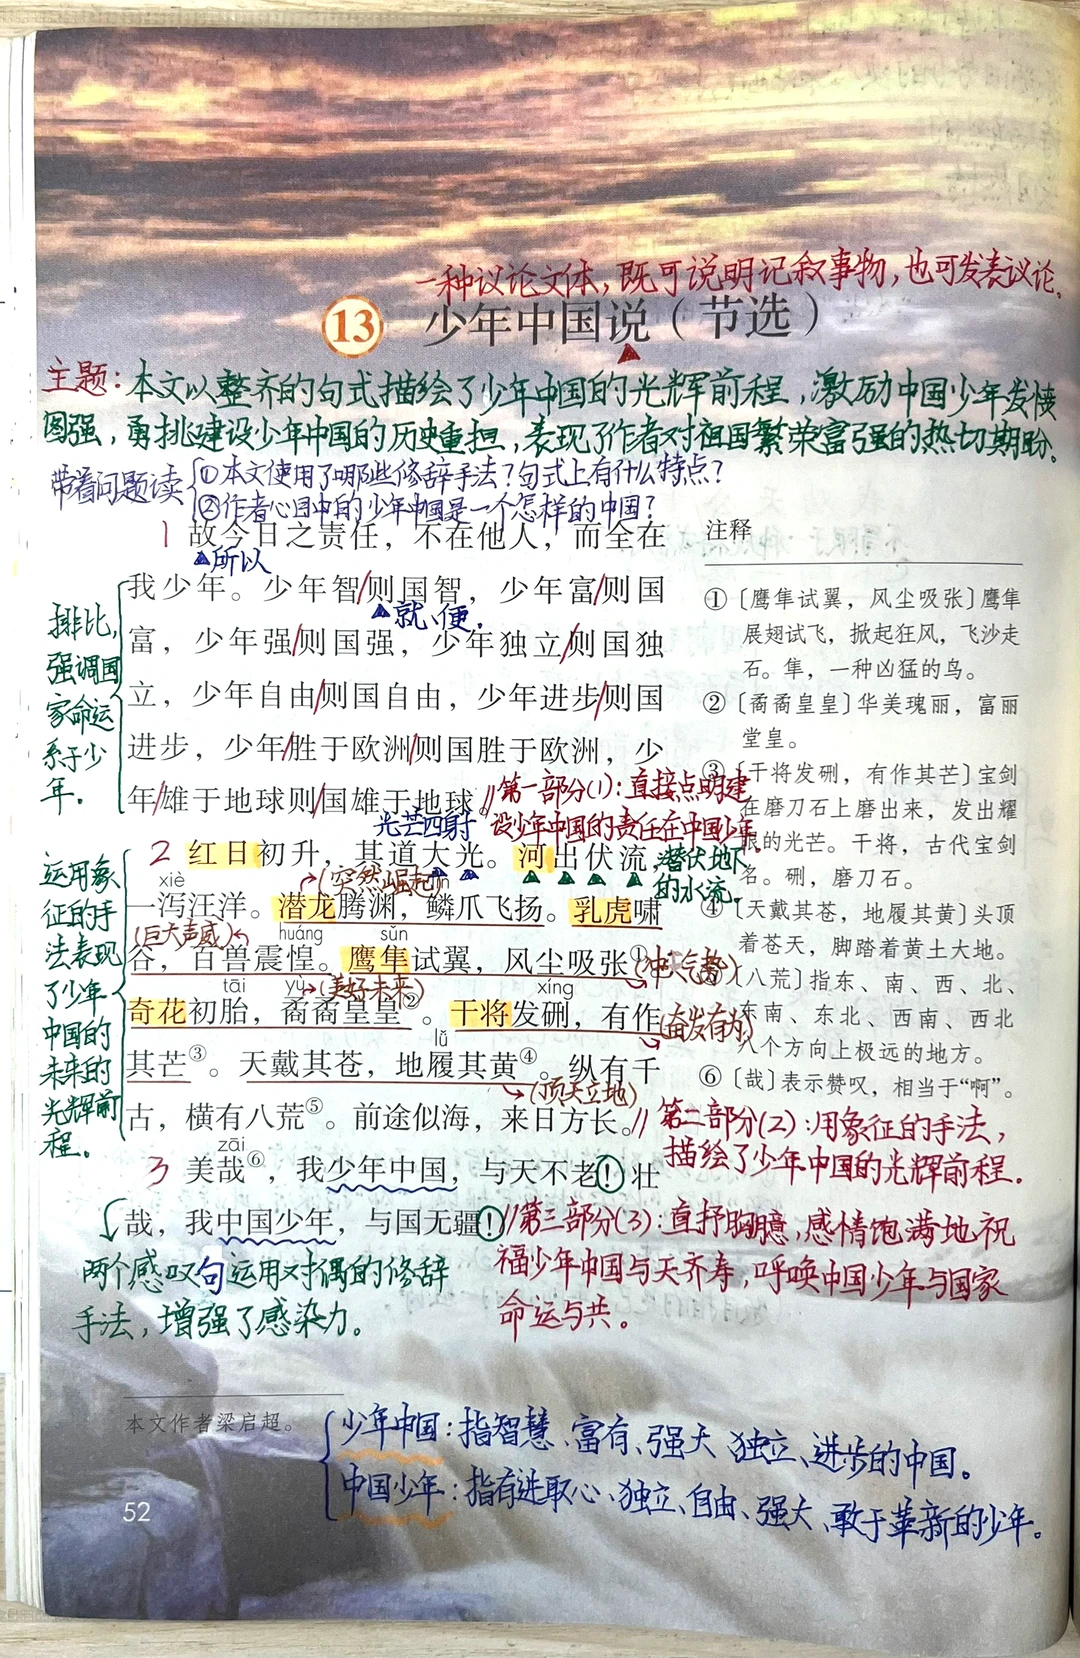 一种议论文体，既可说明记叙事物，也可发表议论。
13 少年中国说（节选）
主题：本文以整齐的句式描绘了少年中国的光辉前程，激励中国少年发愤
图强，勇挑建设少年中国的历史重担，表现了作者对祖国繁荣富强的热切期盼。
带着问题读
①本文使用了哪些修辞手法？句式上有什么特点？
②作者心目中的少年中国是一个怎样的中国？
1 故今日之责任，不在他人，而全在
所以
我少年。少年智/则国智，少年富/则国
就、便。
富，少年强/则国强，少年独立/则国独
立，少年自由/则国自由，少年进步/则国
进步，少年/胜于欧洲/则国胜于欧洲，少
年/雄于地球则/国雄于地球。//
排比，
强调国
家命运
系于少
年。
第一部分(1)：直接点明建
设少年中国的责任在中国少年。
光芒四射
2 红日初升，其道大光。河出伏流，
潜伏地下
的水流。
xiè
(突然崛起)
lín
一泻汪洋。潜龙腾渊，鳞爪飞扬。乳虎啸
(巨大声威)
huáng sǔn
谷，百兽震惶。鹰隼试翼，风尘吸张①。
(冲天气势)
tāi yù
(美好未来)
xíng
奇花初胎，矞矞皇皇②。干将发硎，有作
(奋发有为)
lǚ
其芒③。天戴其苍，地履其黄④。纵有千
(顶天立地)
古，横有八荒⑤。前途似海，来日方长。//
运用象
征的手
法表现
了少年
中国的
未来的
光辉前
程。
第二部分(2)：用象征的手法，
描绘了少年中国的光辉前程。
zāi
3 美哉⑥，我少年中国，与天不老！壮
哉，我中国少年，与国无疆！//
第三部分(3)：直抒胸臆，感情饱满地祝
福少年中国与天齐寿，呼唤中国少年与国家
命运与共。
两个感叹句运用对偶的修辞
手法，增强了感染力。
注释
①〔鹰隼试翼，风尘吸张〕鹰隼
展翅试飞，掀起狂风，飞沙走
石。隼，一种凶猛的鸟。
②〔矞矞皇皇〕华美瑰丽，富丽
堂皇。
③〔干将发硎，有作其芒〕宝剑
在磨刀石上磨出来，发出耀
眼的光芒。干将，古代宝剑
名。硎，磨刀石。
④〔天戴其苍，地履其黄〕头顶
着苍天，脚踏着黄土大地。
〔八荒〕指东、南、西、北、
东南、东北、西南、西北
八个方向上极远的地方。
⑥〔哉〕表示赞叹，相当于“啊”。
本文作者梁启超。
少年中国：指智慧、富有、强大、独立、进步的中国。
中国少年：指有进取心、独立、自由、强大、敢于革新的少年。
52